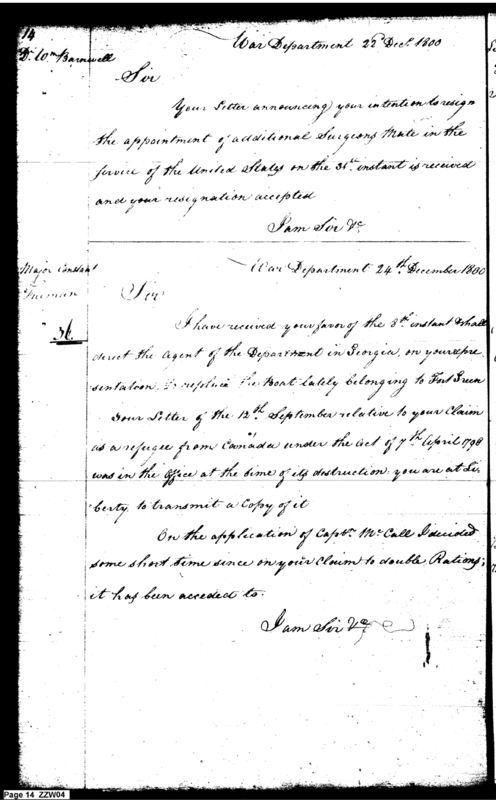 14
Dr. Wm Barnwell
War Department 22d Decr. 1800
Sir
Your Letter announcing your intention to resign
the appointment of additional Surgeons Mate in the
service of the United States on the 31st. instant is received
and your resignation accepted
I am Sir &c
Major Constant
Freeman
War Department 24th. December 1800
Sir
I have received your favor of the 8th. instant & shall
direct the Agent of the Department in Georgia, on your repre
sentation, to replace the Boat lately belonging to Fort Green
Your Letter of the 12th. September relative to your Claim
as a refugee from Canada under the act of 7th April 1798
was in the Office at the time of its destruction. you are at Li
berty to transmit a Copy of it
On the application of Captn. McCall I decided
some short time since on your Claim to double Rations;
it has been acceded to.
I am Sir &c
Page 14 ZZW04